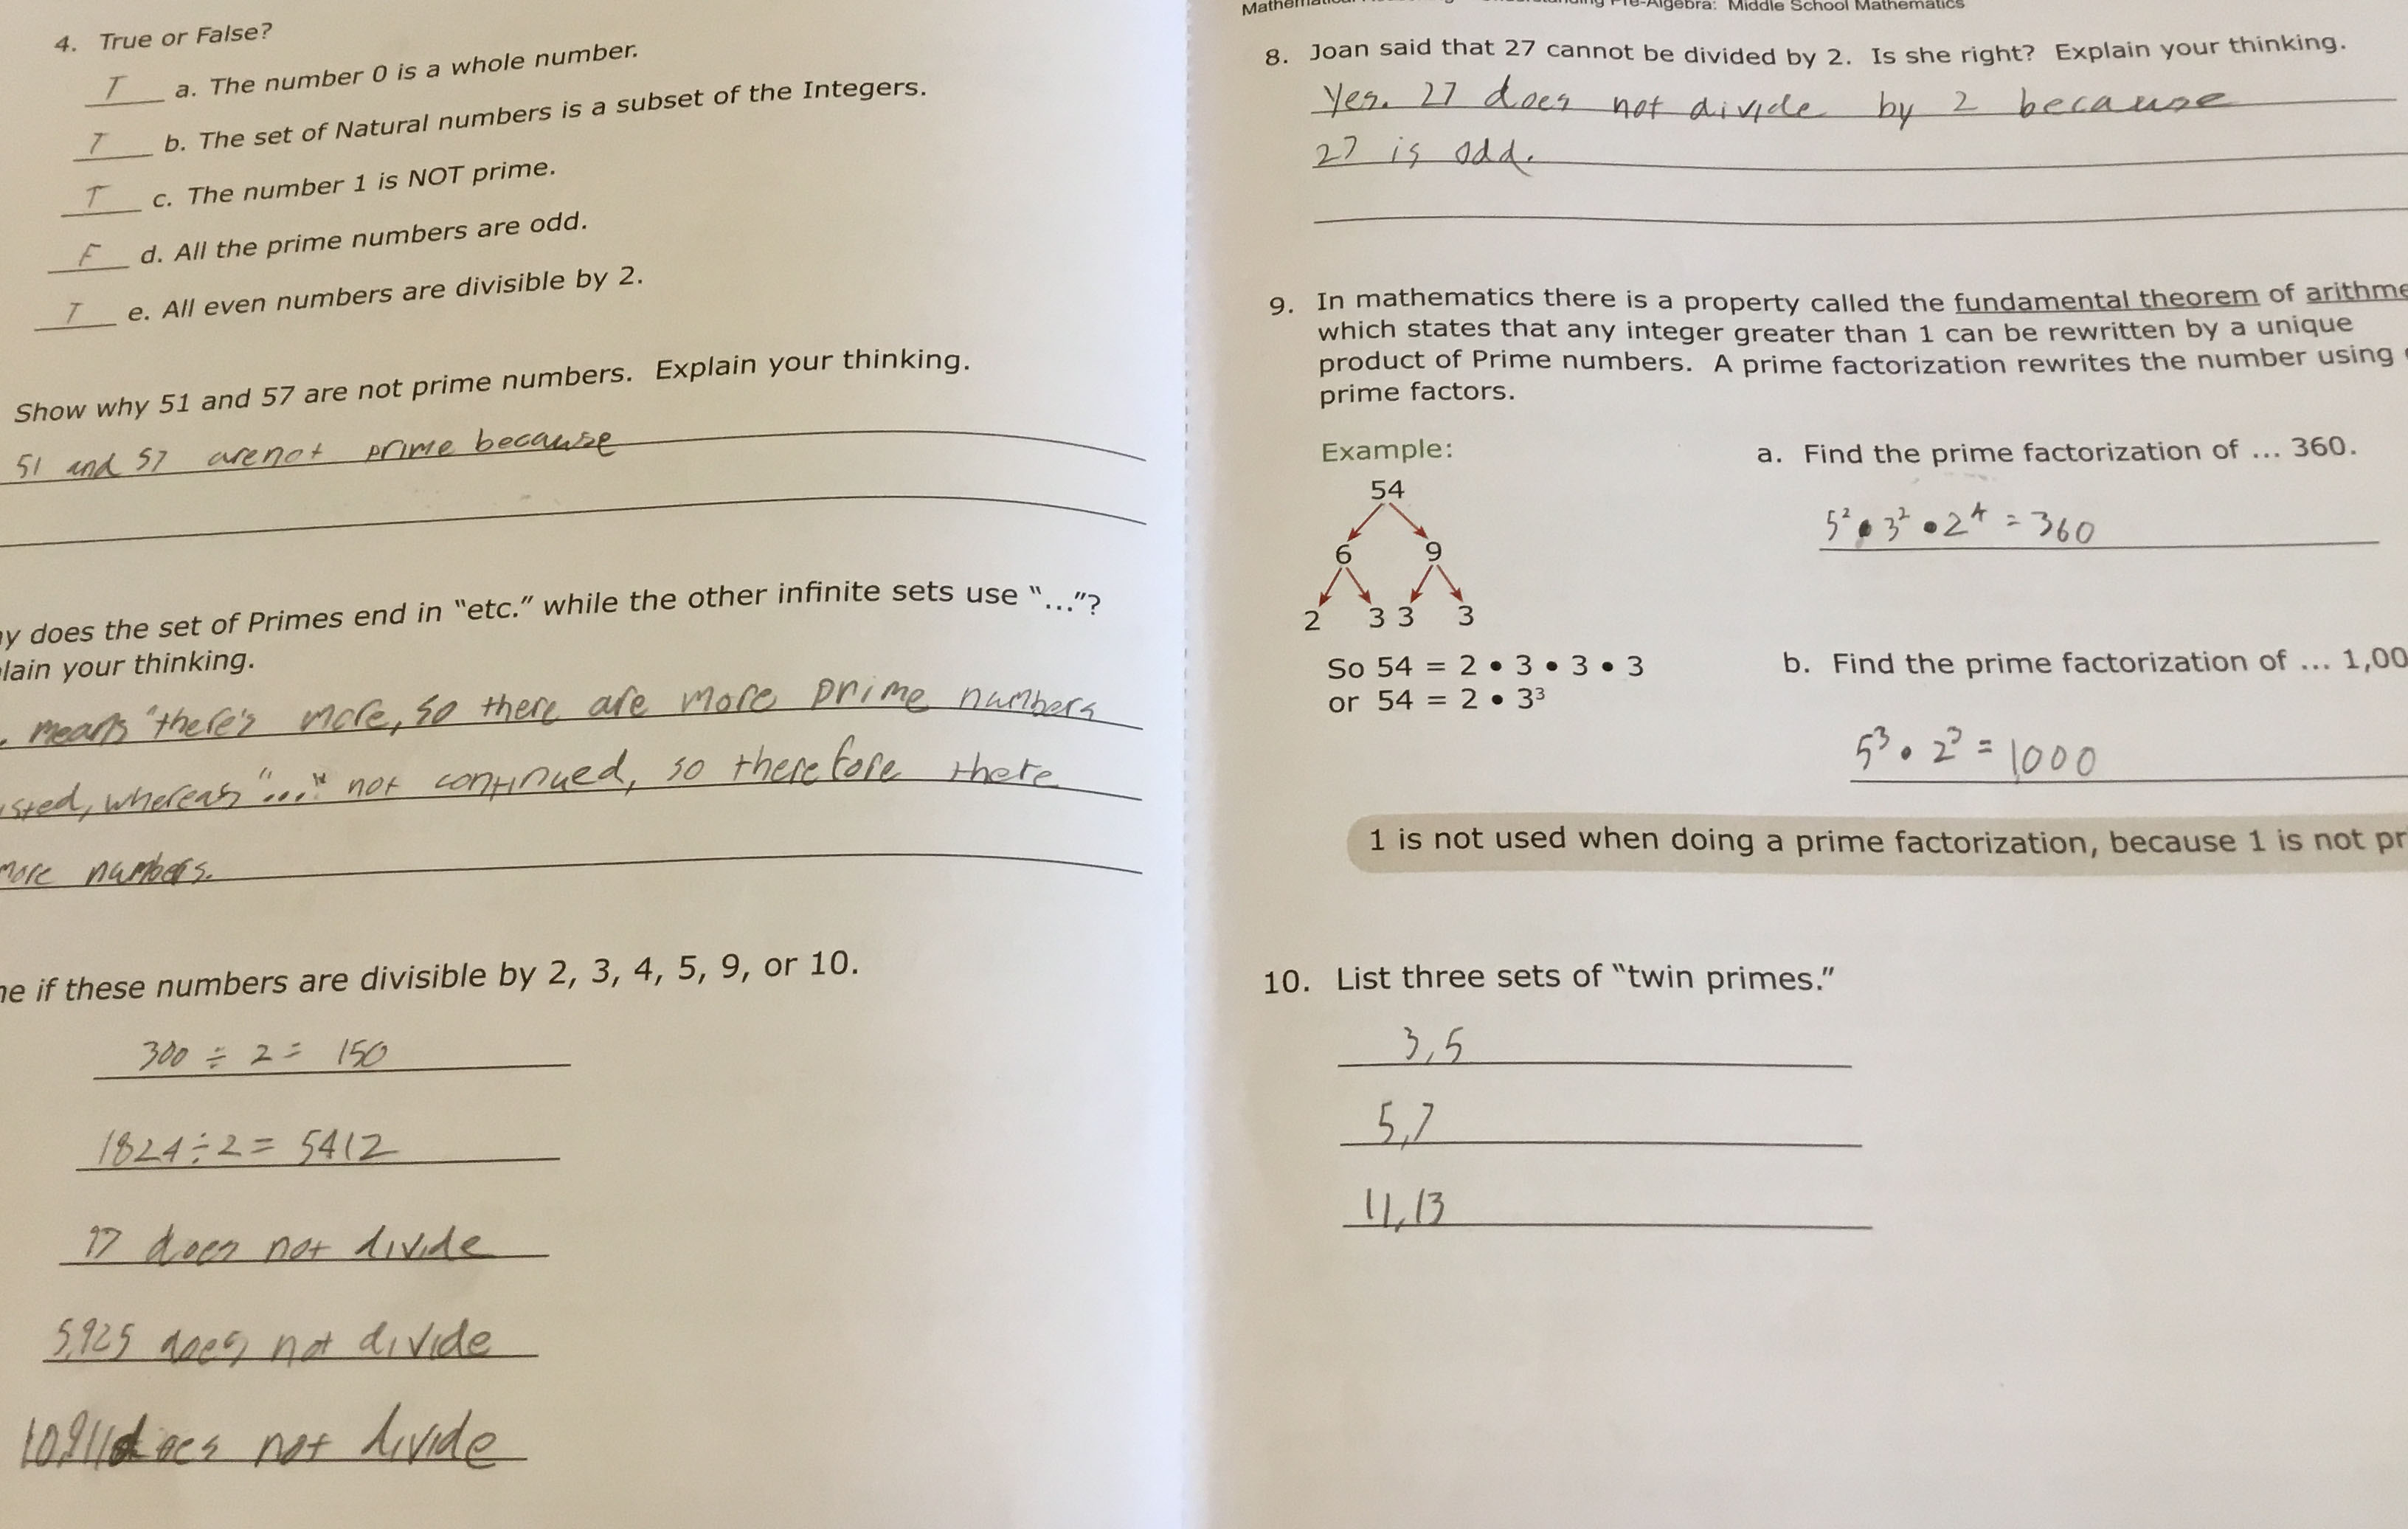 4. True or False?
T a. The number 0 is a whole number.
T b. The set of Natural numbers is a subset of the Integers.
T c. The number 1 is NOT prime.
F d. All the prime numbers are odd.
T e. All even numbers are divisible by 2.
Show why 51 and 57 are not prime numbers. Explain your thinking.
51 and 57 are not prime because
does the set of Primes end in “etc.” while the other infinite sets use “...”?
lain your thinking.
means "there's more, so there are more prime numbers
sted, whereas "..." not continued, so therefore there
more numbers.
if these numbers are divisible by 2, 3, 4, 5, 9, or 10.
300 ÷ 2 = 150
1824 ÷ 2 = 5412
does not divide
5,925 does not divide
does not divide
Pre-Algebra: Middle School Mathematics
8. Joan said that 27 cannot be divided by 2. Is she right? Explain your thinking.
Yes. 27 does not divide by 2 because
27 is odd.
9. In mathematics there is a property called the fundamental theorem of arithme
which states that any integer greater than 1 can be rewritten by a unique
product of Prime numbers. A prime factorization rewrites the number using
prime factors.
Example:
54
6 9
2 3 3 3
So 54 = 2 • 3 • 3 • 3
or 54 = 2 • 3³
a. Find the prime factorization of ... 360.
5² • 3² • 2⁴ = 360
b. Find the prime factorization of ... 1,00
5³ • 2³ = 1000
1 is not used when doing a prime factorization, because 1 is not pr
10. List three sets of “twin primes.”
3, 5
5, 7
11, 13